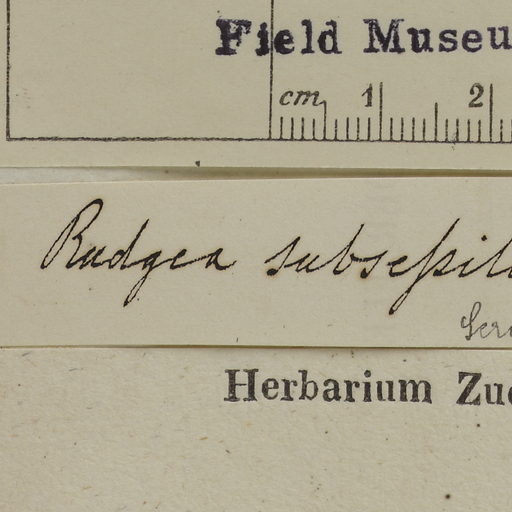 Field Museu
cm 1 2
Rudgea subsessil
Ser
Herbarium Zuc